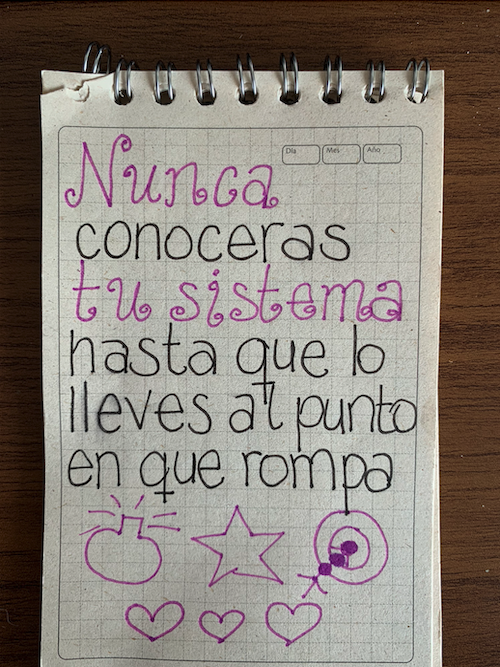 Día Mes Año
Nunca
conoceras
tu sistema
hasta que lo
lleves al punto
en que rompa